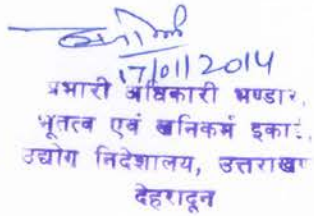 17/01/2014
प्रभारी अधिकारी भण्डार,
भूतत्व एवं खनिकर्म इकाई,
उद्योग निदेशालय, उत्तराखण
देहरादून